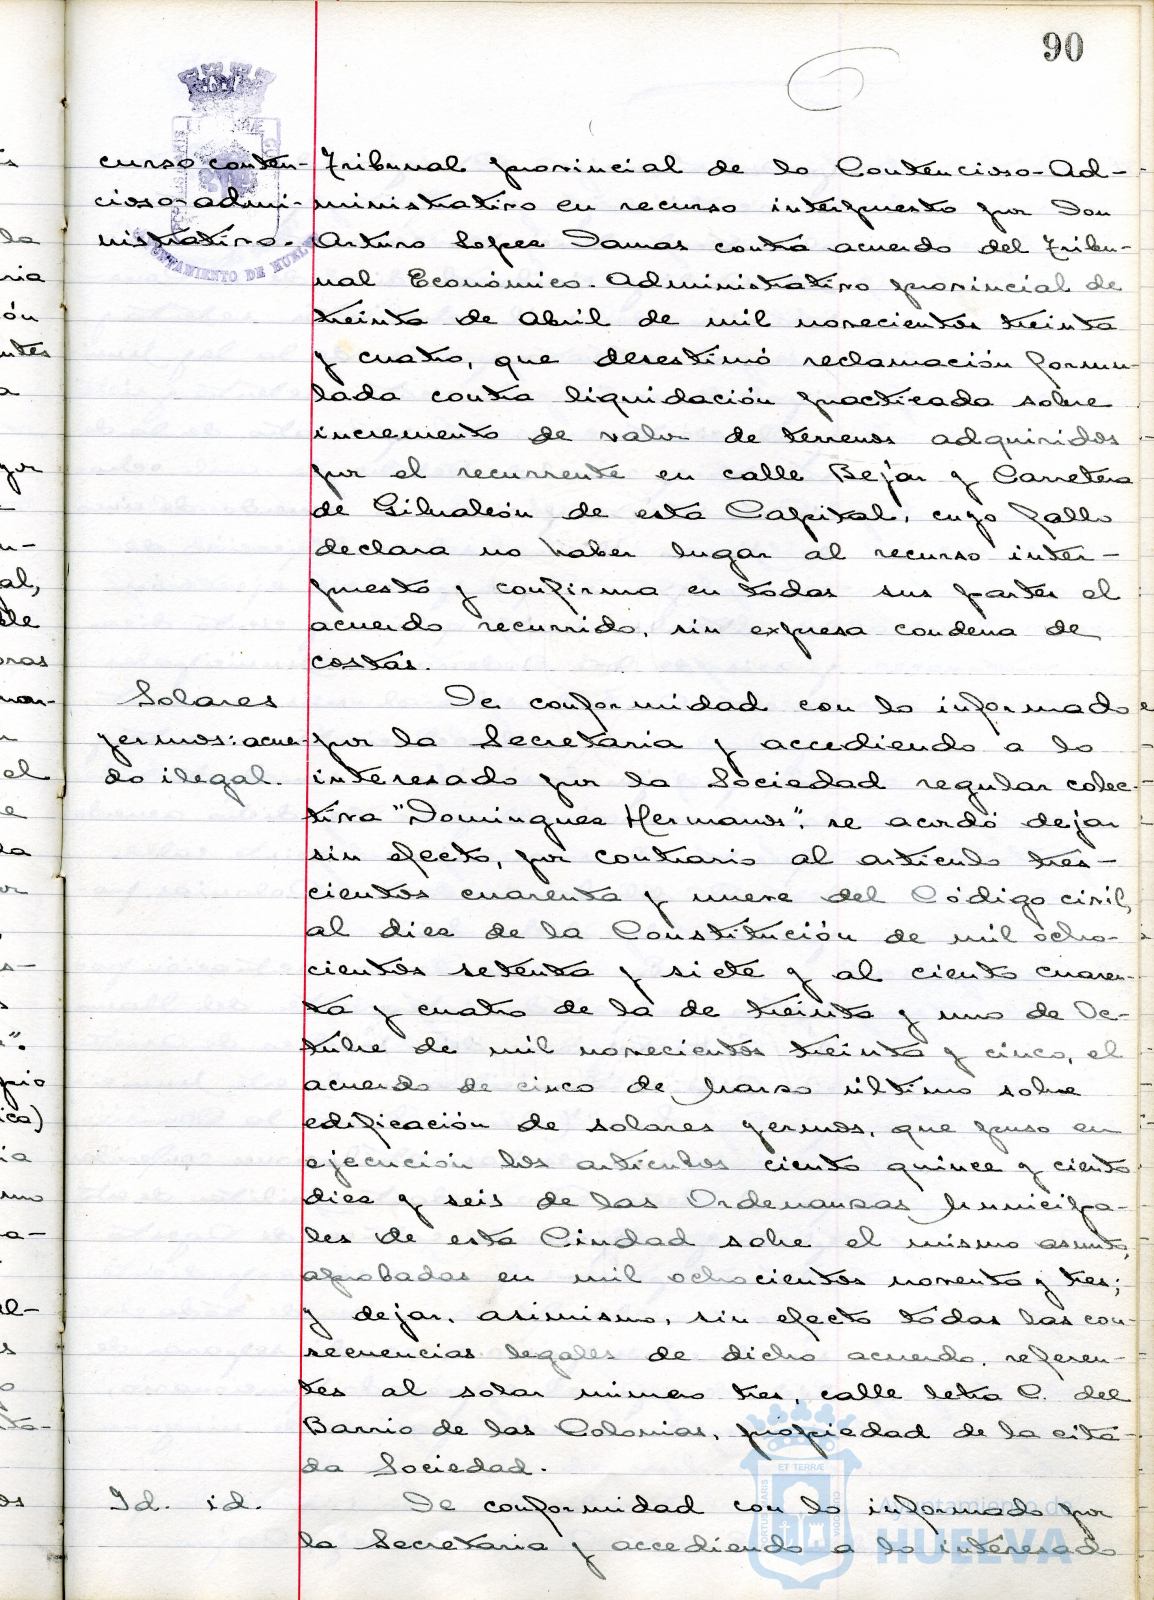 90
curso conten-
cioso-admi-
nistrativo.
Tribunal provincial de lo Contencioso-Ad-
ministrativo en recurso interpuesto por Don
Arturo Lopez Damas contra acuerdo del Tribu-
nal Económico-Administrativo provincial de
treinta de Abril de mil novecientos treinta
y cuatro, que desestimó reclamación formu-
lada contra liquidación practicada sobre
incremento de valor de terrenos adquiridos
por el recurrente en calle Bejar y Carretera
de Gibraleón de esta Capital, cuyo fallo
declara no haber lugar al recurso inter-
puesto y confirma en todas sus partes el
acuerdo recurrido, sin expresa condena de
costas.
Solares
yermos: acuer-
do ilegal.
De conformidad con lo informado
por la Secretaria y accediendo a lo
interesado por la Sociedad regular colec-
tiva "Dominguez Hermanos", se acordó dejar
sin efecto, por contrario al articulo tres-
cientos cuarenta y nueve del Código civil,
al diez de la Constitución de mil ocho-
cientos setenta y siete y al ciento cuaren-
ta y cuatro de la de treinta y uno de Oc-
tubre de mil novecientos treinta y cinco, el
acuerdo de cinco de Marzo último sobre
edificación de solares yermos, que puso en
ejecución los articulos ciento quince y ciento
diez y seis de las Ordenanzas Municipa-
les de esta Ciudad sobre el mismo asunto,
aprobadas en mil ochocientos noventa y tres;
y dejar, asimismo, sin efecto todas las con-
secuencias legales de dicho acuerdo, referen-
tes al solar número tres, calle letra C. del
Barrio de las Colonias, propiedad de la cita-
da Sociedad.
Id. id.
De conformidad con lo informado por
la Secretaria y accediendo a lo interesado
AYUNTAMIENTO DE HUELVA
Ayuntamiento de
HUELVA